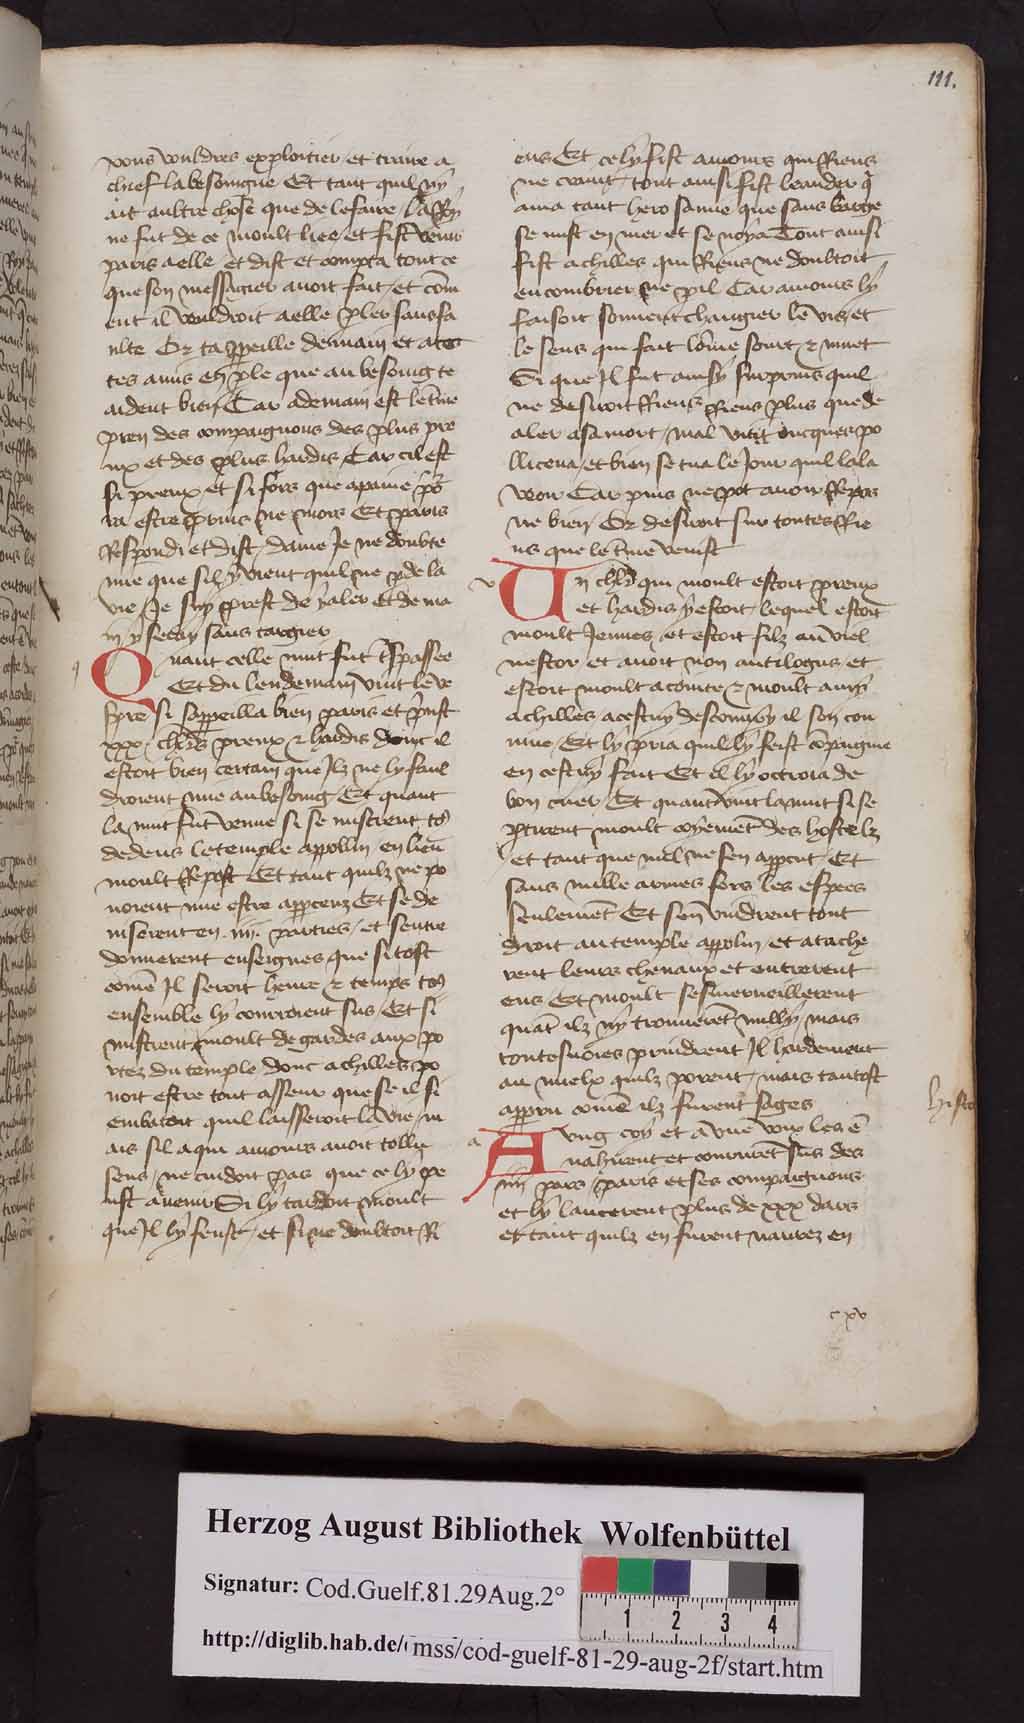 111.
vous vouldres exploitier et traire a
chief la besoingne Et tant quil ny
ait aultre chose que de le faire La Ry
ne fut de ce moult liee et fist venir
paris a elle et dist et compta tout ce
que son messagier avoit fait et com
ent il vouldroit a elle pler sans fa
ulte Or tappeille demain et a tes
tes amis en ple que au besoing te
aident bien Car a demain est le tme
pren des compaignons des plus pre
ux et des plus hardis Car cil est
si preux et si fors que a paine por
ra estre prins ne mors Et paris
Respondi et dist dame Je ne doubte
mie que sil y vient quil ne pde la
vie Je suy prest de y aler et de ma
in y seray sans targier
Quant celle nuit fut tspassee
Et du lendemain vint le ve
spre si sappeilla bien paris et prist
xxx chlrs preux et hardis donc il
estoit bien certain que Ilz ne ly faul
droient mie au besoing Et quant
la nuit fut venue si se mistrent tos
dedens le temple appollin en lieu
moult Repost Et tant quilz ne po
uoient mie estre appceuz Et se de
uiserent en .iiii. parties et sentre
donnerent enseignes que si tost
come Il seroit heure et temps tos
ensemble ly courroient sus Et si
mistrent moult de gardes aux po
rtez du temple donc achilles po
uoit estre tout asseur que se il si
embatoit quil laisseroit la vie m
ais sil a qui amours auoit tollu
sens ne cuidoit pas que ce ly pe
ust auenir Si ly tardoit moult
que Il ly feust et si ne doubtoit Ri
ens Et ce ly fist amours qui Riens
ne craint tout ainsi fist leander q
ama tant hero samie que sans barge
se mist en mer et se noya Tout ainsi
fist achilles qui Riens ne doubtoit
encombrier ne pil Car amours ly
faisoit souuent changier le vis et
le sens qui fait lome sourt et muet
Si que Il fut ainsy surprins quil
ne desiroit Riens Riens plus que de
aler a sa mort mal vit oncques po
llicena et bien se tua le Jour quil lala
veoir Car puis ne pot auoir Repos
ne bien Or desiroit sur toutes Rie
ns que le tme venist
Un chlr qui moult estoit preux
et hardis y estoit lequel estoit
moult Jennes et estoit filz au viel
nestor et auoit non antilogus et
estoit moult acointe et moult amy
achilles a cestuy descouury il son cou
uine Et ly pria quil ly feist copagnie
en cestuy fait Et il ly octroia de
bon cuer Et quant vint la nuit si se
ptirent moult coyement des hostelz
et tant que nul ne sen appcut Et
sans nulle armes fors les espees
seulement Et sen vindrent tout
droit au temple appolin et atache
rent leurs cheuaux et entrerent
ens Et moult sesmerueillerent
quat ilz ny trouueret nully mais
toutesuoies prindrent Il hardement
au mielx quilz porent mais tantost
apprin come ilz furent sages
A ung coy et a une voix les e
nahirent et coururet sus des
iiii pars paris et ses compaignons
et ly lancerent plus de xxx dars
et tant quilz en furent naurez en
histo
cxv
Herzog August Bibliothek Wolfenbüttel
Signatur: Cod.Guelf.81.29Aug.2°
1 2 3 4
http://diglib.hab.de/mss/cod-guelf-81-29-aug-2f/start.htm